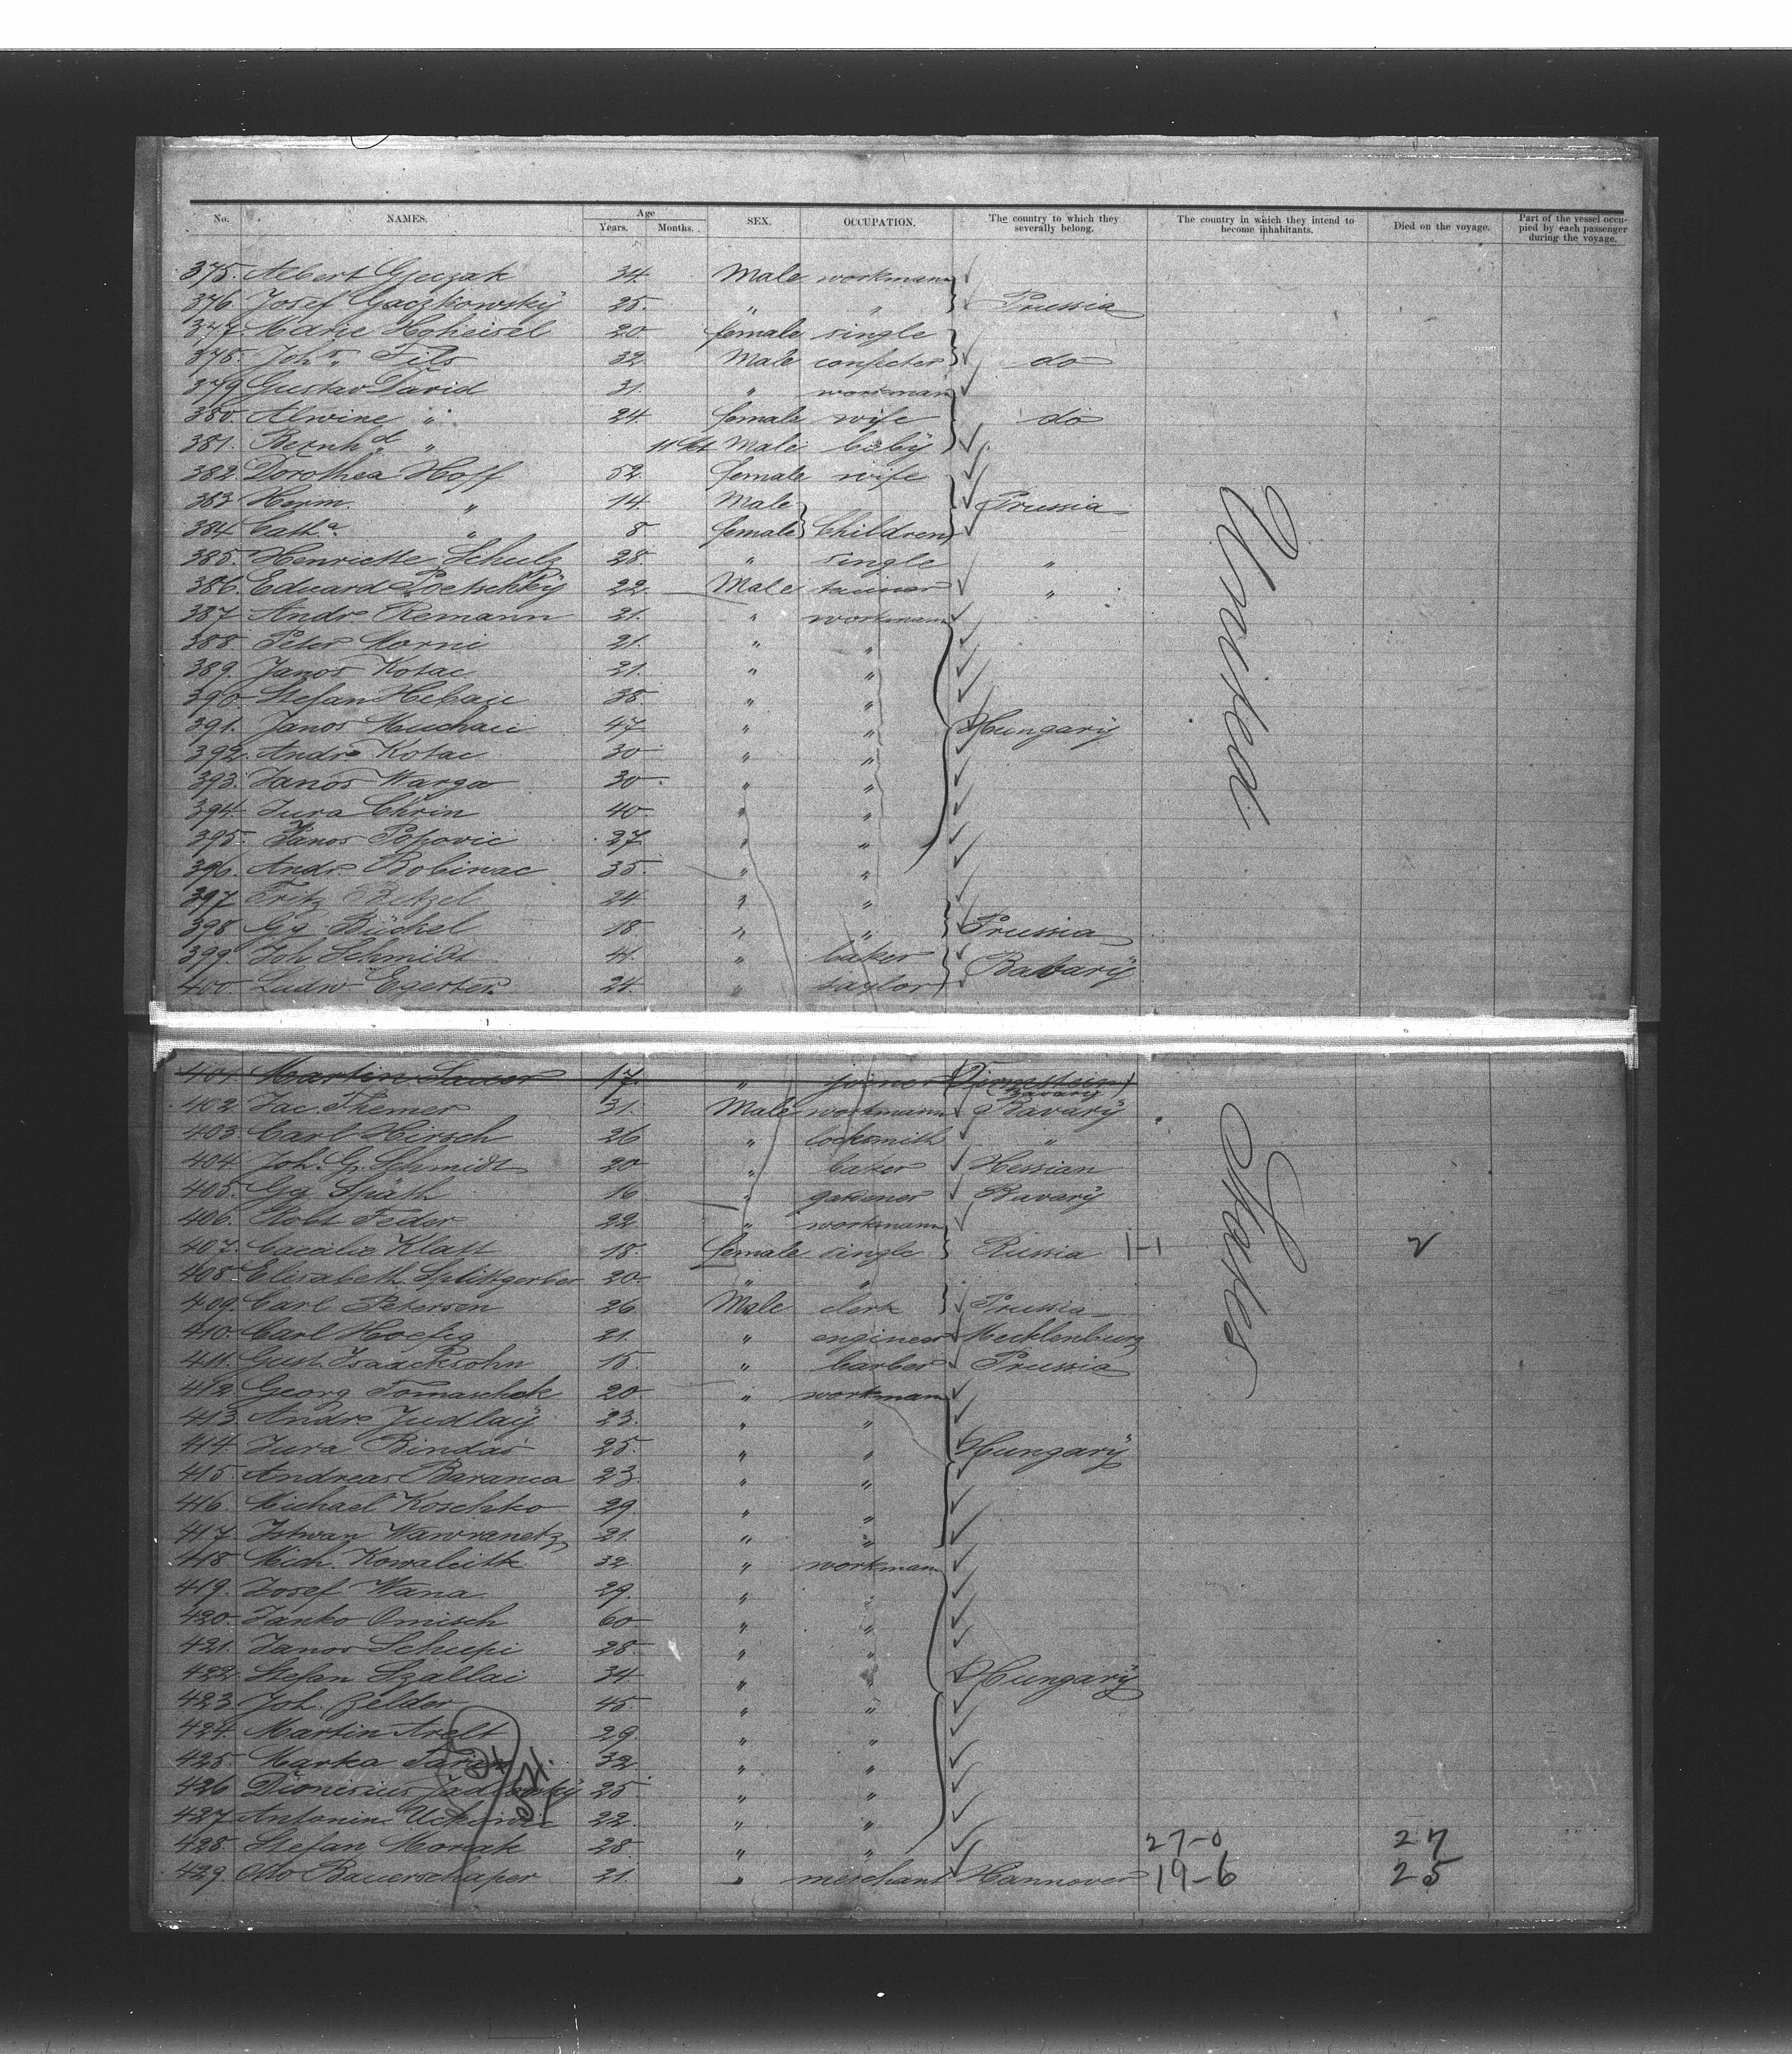 No. NAMES. Age Years. Months. SEX. OCCUPATION. The country to which they severally belong. The country in which they intend to become inhabitants. Died on the voyage. Part of the vessel occupied by each passenger during the voyage.
375. Albert 34. Male workmann
376. Josef Gaczkowský 25. " " Prussia
377. Marie Hoheisel 20. female single
378. Joh. Fils 32. Male do
379. Gustav David 31. " workman
380. Alwine " 24. female wife do
381. Bernhd " 11 Male babÿ
382. Dorothea Hoff 52. female wife
383. Herm. " 14. Male Prussia
384. Catha. " 8. female Children
385. Henriette Schulz 28. " single "
386. Eduard Poetschkÿ 22. Male tanner "
387. Andr. Remann 21. " workmann
388. Peter Morni 21. " "
389. Janos Kotac 21. " "
390. Stefan 38. " "
391. Janos 47. " " Hungarÿ
392. Andre Kotac 30 " "
393. Janos Warga 30 " "
394. Jura Chrin 40 " "
395. Janos Popovic 27. " "
396. Andr. Bobinac 35. " "
397 Fritz Betzel 24 " "
398 Gg. Büchel 18. " " Prussia
399. Joh Schmidt 41. " baker Bavarÿ
400. Ludw Egerter. 24. " taylor
United
401. Martin Sauer 17. " joiner Bavarÿ
402 Jac. Themer 31. Male workmann Bavarÿ
403. Carl Hirsch 26 " locksmith "
404. Joh. G. Schmidt 20 " baker Hessian
405. Gg Späth 16 " gardener Bavarÿ
406. Robt Feder 22 " workmann
407. Caecilie Klatt 18. female single Russia 1-1 2
408. Elisabeth Splittgerber 20. " "
409. Carl Petersen 26 Male clerk Prussia
410. Carl Hoefig 21. " engineer Mecklenburg
411. Gust. Isaacksohn 15. " barber Prussia
412. Georg Tomaschek 20 " workman
413. Andre Judlaÿ 23. " "
414. Jura Bindas 25. " " Hungarÿ
415. Andreas Baranca 23. " "
416. Michael Koschko 29. " "
417. Istwan Wawranetz 21. " "
418. Mich. Kowalcitk 32. " workman
419. Josef Wana 29. " "
420. Janko Omisch 60 " "
421. Janos Schupi 28. " "
422. Stefan Szallai 34. " " Hungarÿ
423. Joh. Zelder 45. " "
424. Martin Arelt 29. " "
425. Marka 32. " "
426 Dionisius 25 " "
427. Antonin 22. " "
428. Stefan Monak 28. " " 27-0 27
429. Otto Bauerschaper 21. " merchant Hannover 19-6 25
States